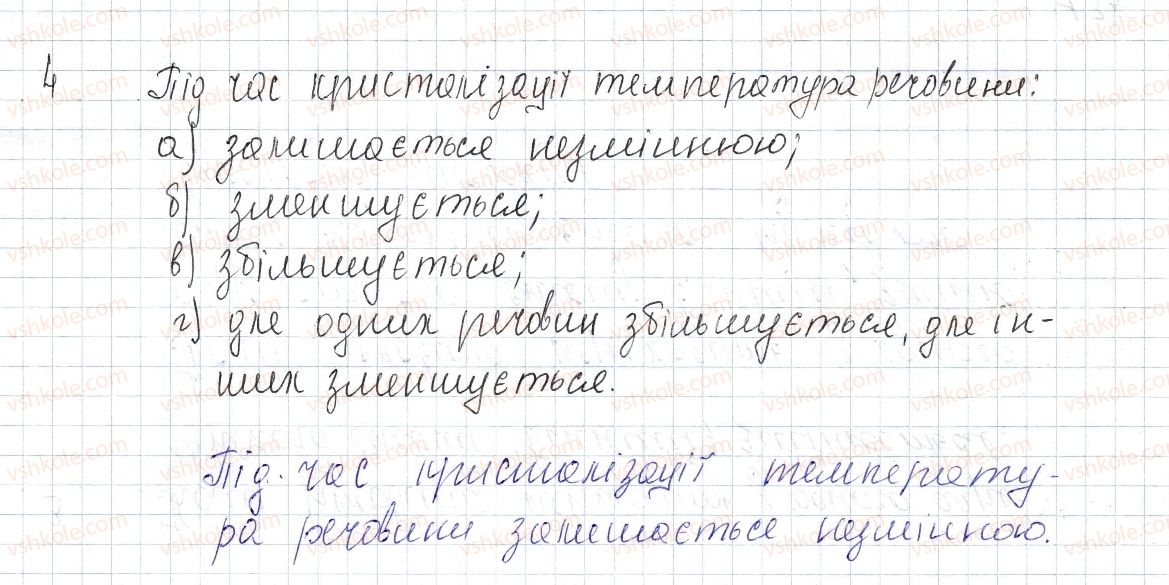 4 Під час кристалізації температура речовини:
а) залишається незмінною;
б) зменшується;
в) збільшується;
г) для одних речовин збільшується, для ін-
ших зменшується.
Під час кристалізації температу-
ра речовини залишається незмінною.